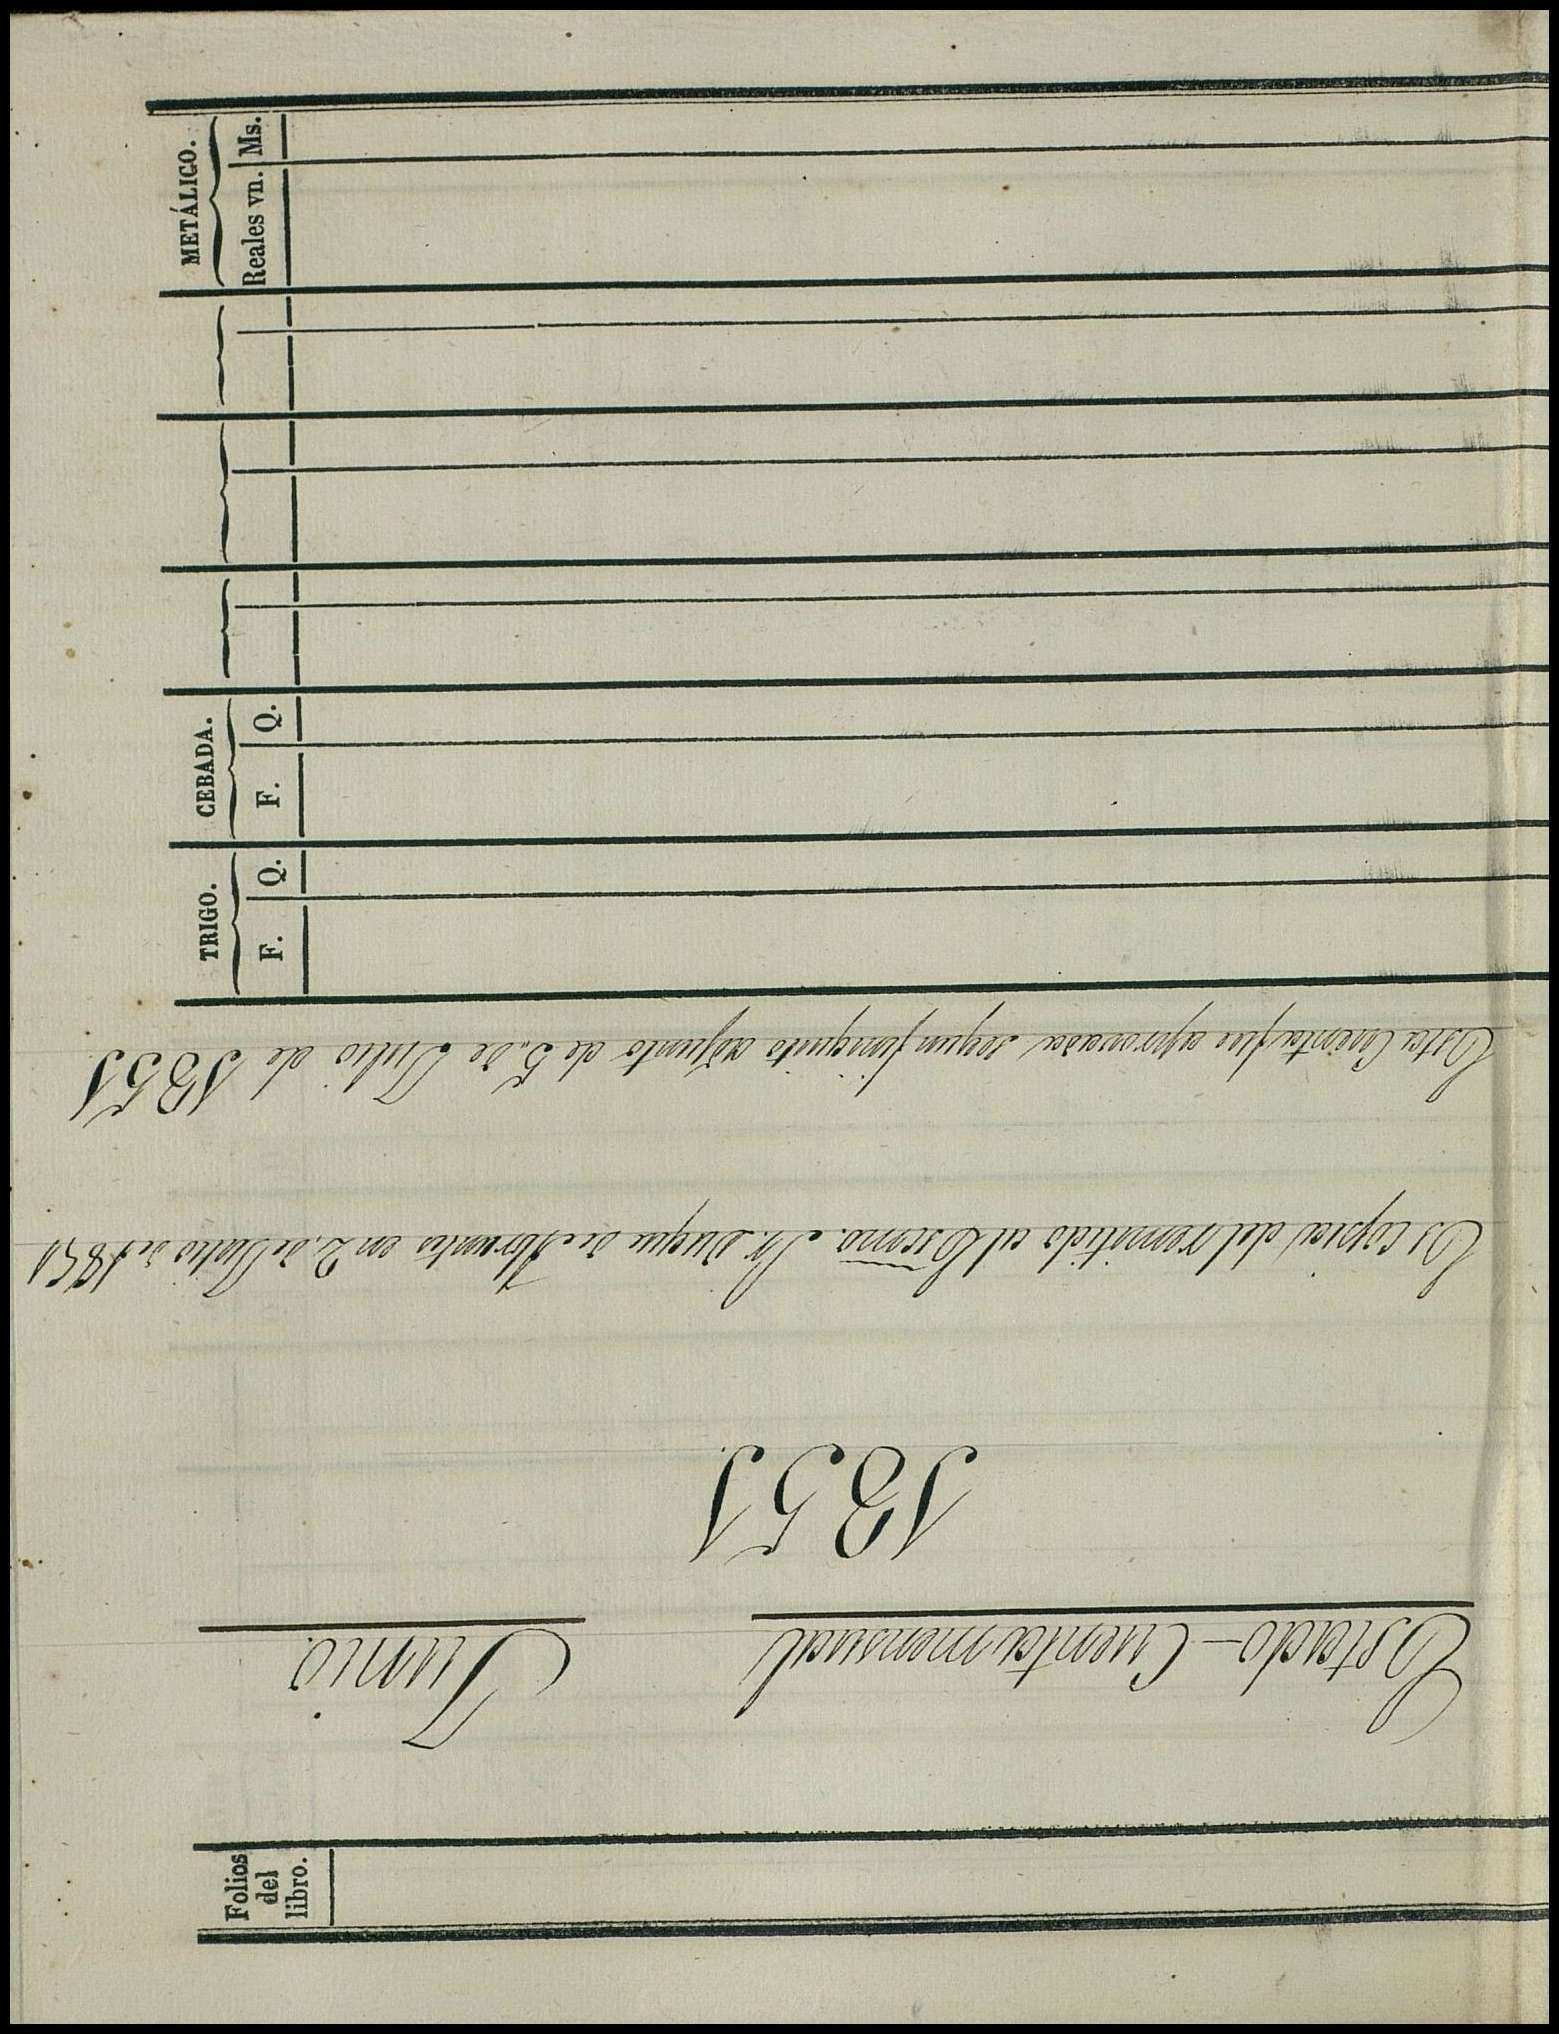 Estado-Cuenta mensual Junio.
1851.
Es copia del remitido al Escmo. Sr. Duque de en 2. de Julio de 1851
Esta Cuenta fue aprovada segun finiquito adjunto de 5. de Julio de 1851
Folios
del
libro.
TRIGO. CEBADA. METÁLICO.
F. Q. F. Q. Reales vn. Ms.